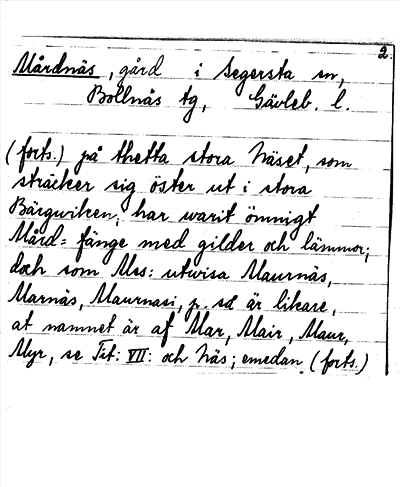 2.
Mårdnäs, gård i Segersta sn,
Bollnäs tg, Gävleb. l.
(forts.) på thetta stora Näset, som
sträcker sig öster ut i stora
Bärgwiken, har warit ömnigt
Mård= fänge med gilder och lämmor;
doch som Mss: utwisa Maurnäs,
Marnäs, Maurnasi, p. sd är likare,
at namnet är af Mar, Mair, Maur,
Myr, se Tit: VII: och Näs; emedan (forts.)